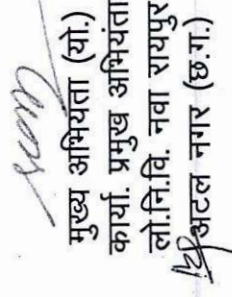 मुख्य अभियंता (यो.)
कार्या. प्रमुख अभियंता
लो.नि.वि. नवा रायपुर
अटल नगर (छ.ग.)